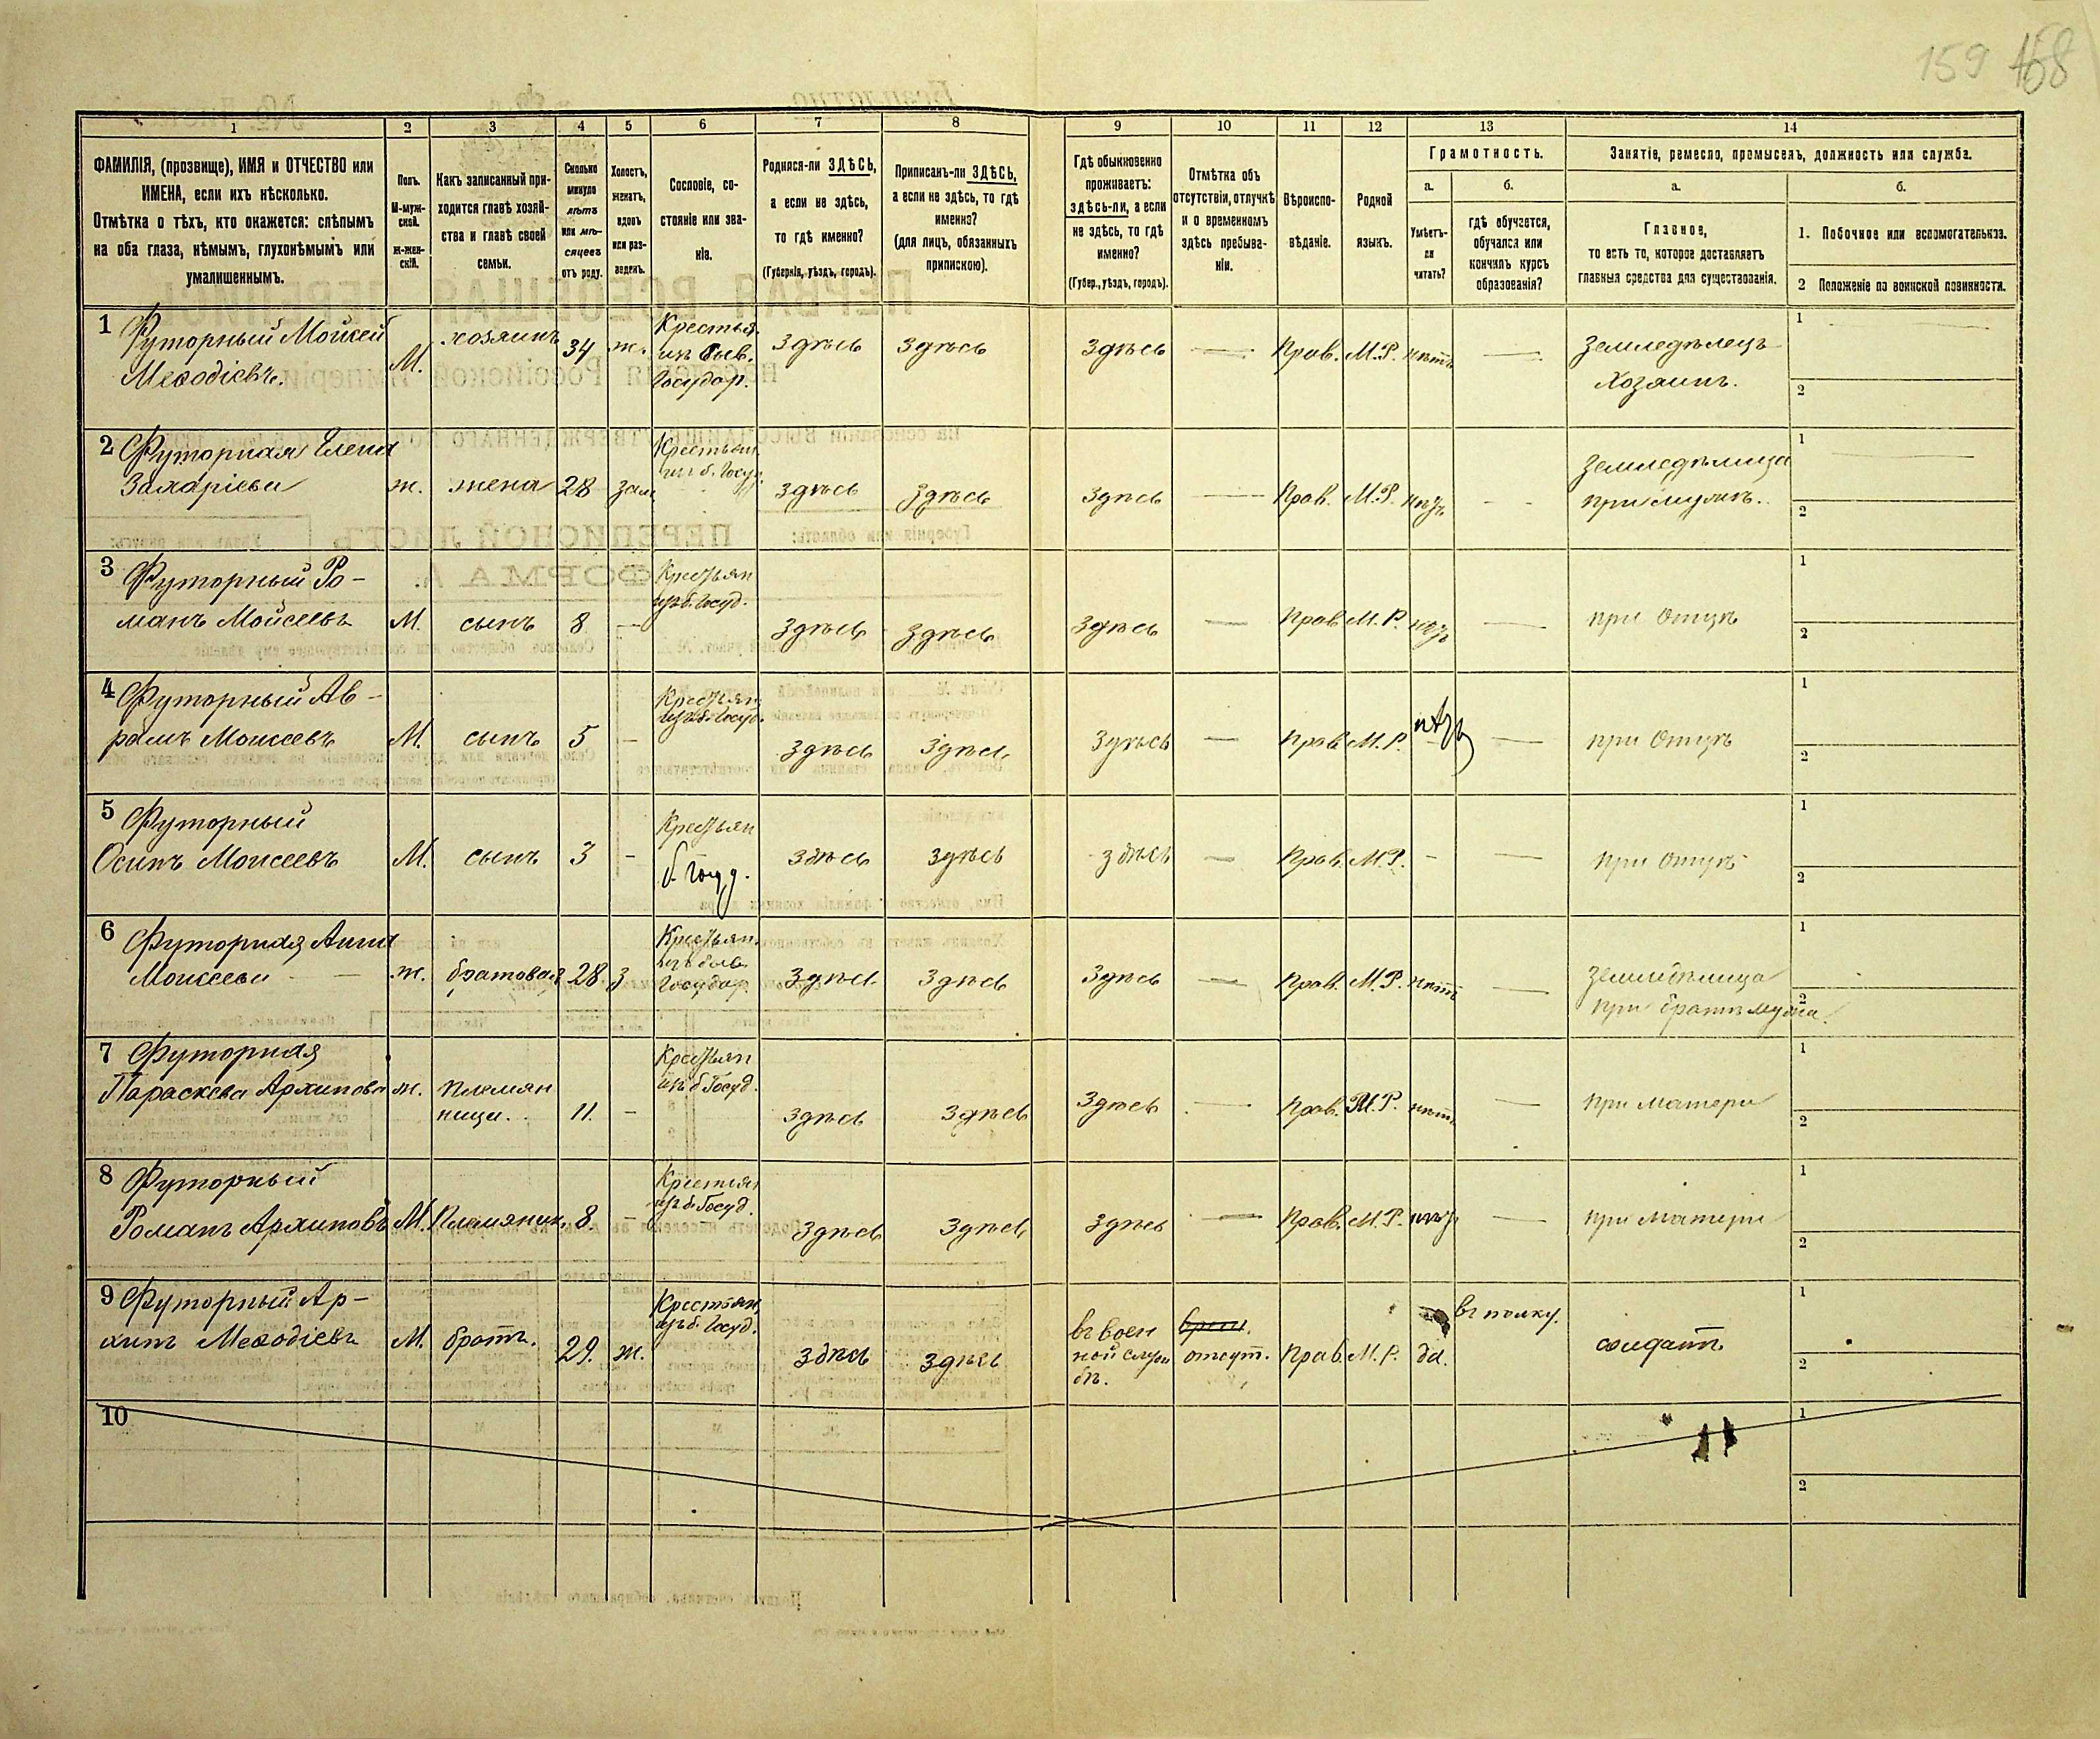 159 168
1
2
3
4
5
6
7
8
9
10
11
12
13
14
ФАМИЛІЯ, (прозвище), ИМЯ и ОТЧЕСТВО или
ИМЕНА, если ихъ нѣсколько.
Отмѣтка о тѣхъ, кто окажется: слѣпымъ
на оба глаза, нѣмымъ, глухонѣмымъ или
умалишеннымъ.
Полъ.
М-муж-
ской.
Ж-жен-
скій.
Какъ записанный при-
ходится главѣ хозяй-
ства и главѣ своей
семьи.
Сколько
минуло
лѣтъ
или мѣ-
сяцевъ
отъ роду.
Холостъ,
женатъ,
вдовъ
или раз-
веденъ.
Сословіе, со-
стояніе или зва-
ніе.
Родился-ли ЗДѢСЬ,
а если не здѣсь,
то гдѣ именно?
(Губернія, уѣздъ, городъ).
Приписанъ-ли ЗДѢСЬ,
а если не здѣсь, то гдѣ
именно?
(для лицъ, обязанныхъ
припискою).
Гдѣ обыкновенно
проживаетъ:
здѣсь-ли, а если
не здѣсь, то гдѣ
именно?
(Губер., уѣздъ, городъ).
Отмѣтка объ
отсутствіи, отлучкѣ
и о временномъ
здѣсь пребыва-
ніи.
Вѣроиспо-
вѣданіе.
Родной
языкъ.
Грамотность.
а.
Умѣетъ-
ли
читать?
б.
гдѣ обучается,
обучался или
кончилъ курсъ
образованія?
Занятіе, ремесло, промыселъ, должность или служба.
а.
Главное,
то есть то, которое доставляетъ
главныя средства для существованія.
б.
1. Побочное или вспомогательное.
2 Положеніе по воинской повинности.
1 Футорный Мойсей
Меѳодіевъ.
М.
хозяинъ
34
ж.
Крестья.
изъ быв.
Государ.
здѣсь
здѣсь
здѣсь
—
Прав.
М.Р.
нѣтъ
—
Земледѣлецъ
Хозяинъ.
1
2
2 Футорная Елена
Захаріева
ж.
жена
28
зам.
Крестьян.
изъ б. Госуд.
здѣсь
здѣсь
здѣсь
—
Прав.
М.Р.
— —
Земледѣлица
при мужѣ.
1
2
3 Футорный Ро-
манъ Мойсеевъ
М.
сынъ
8
—
Крестьян
изъ б. Госуд.
здѣсь
здѣсь
здѣсь
—
Прав.
М.Р.
—
при Отцѣ
1
2
4 Футорный Ав-
рамъ Моисеевъ
М.
сынъ
5
—
Крестьян
изъ б. Госуд.
здѣсь
здѣсь
здѣсь
—
Прав.
М.Р.
—
при Отцѣ
1
2
5 Футорный
Осипъ Моисеевъ
М.
сынъ
3
-
Крестьян
б. Госуд.
здѣсь
здѣсь
здѣсь
—
Прав.
М.Р.
-
—
при Отцѣ
1
2
6 Футорная Анна
Моисеева
ж.
братовая
28
з
Крестьян.
изъ быв.
Государ.
здѣсь
здѣсь
здѣсь
—
Прав.
М.Р.
нѣтъ
—
Земледѣлица
при братѣ мужа.
1
2
7 Футорная
Параскева Архипова
ж.
племян
ница.
11.
-
Крестьян
изъ б. Госуд.
здѣсь
здѣсь
здѣсь
—
Прав.
М.Р.
нѣтъ
—
при матери
1
2
8 Футорный
Романъ Архиповъ
М.
Племяник.
8.
-
Крестьян
изъ б. Госуд.
здѣсь
здѣсь
здѣсь
—
Прав.
М.Р.
—
при матери
1
2
9 Футорный Ар-
хипъ Меѳодіевъ
М.
братъ.
29.
ж.
Крестьян,
изъ б. Госуд.
здѣсь
здѣсь
въ воен
ной служ
бѣ.
врем.
отсут.
Прав.
М.Р.
да.
въ полку.
солдатъ
1
2
10
1
2